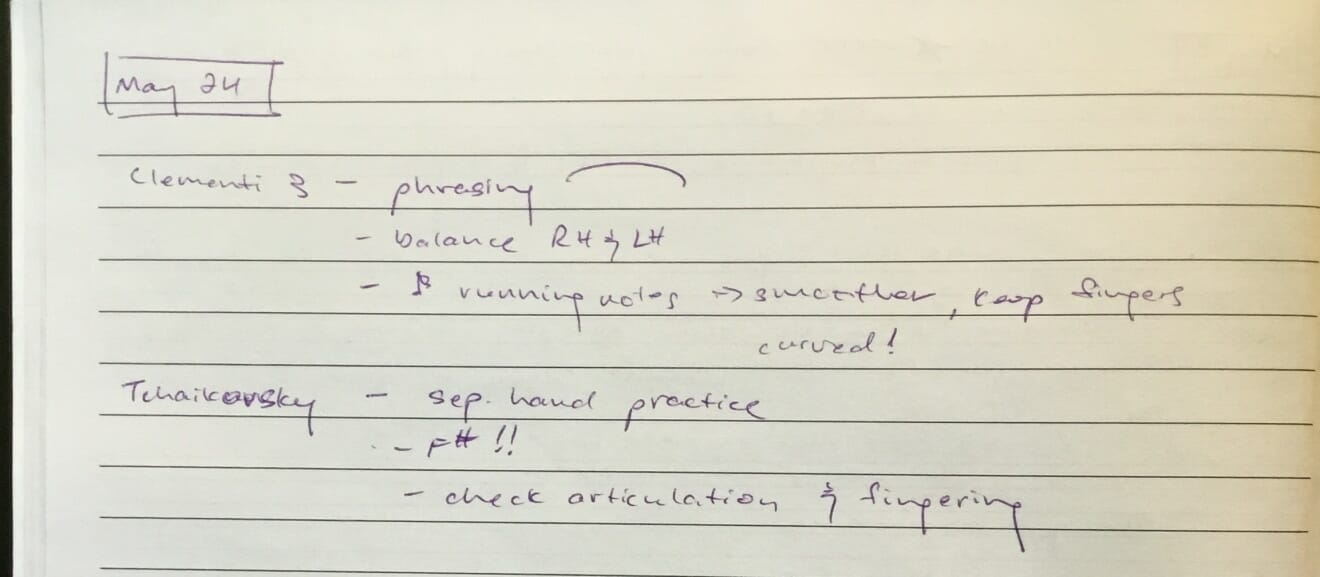 May 24
Clementi 3 - phrasing
- balance RH & LH
- running notes → smoother, keep fingers
curved!
Tchaikovsky - sep. hand practice
- F# !!
- check articulation & fingering